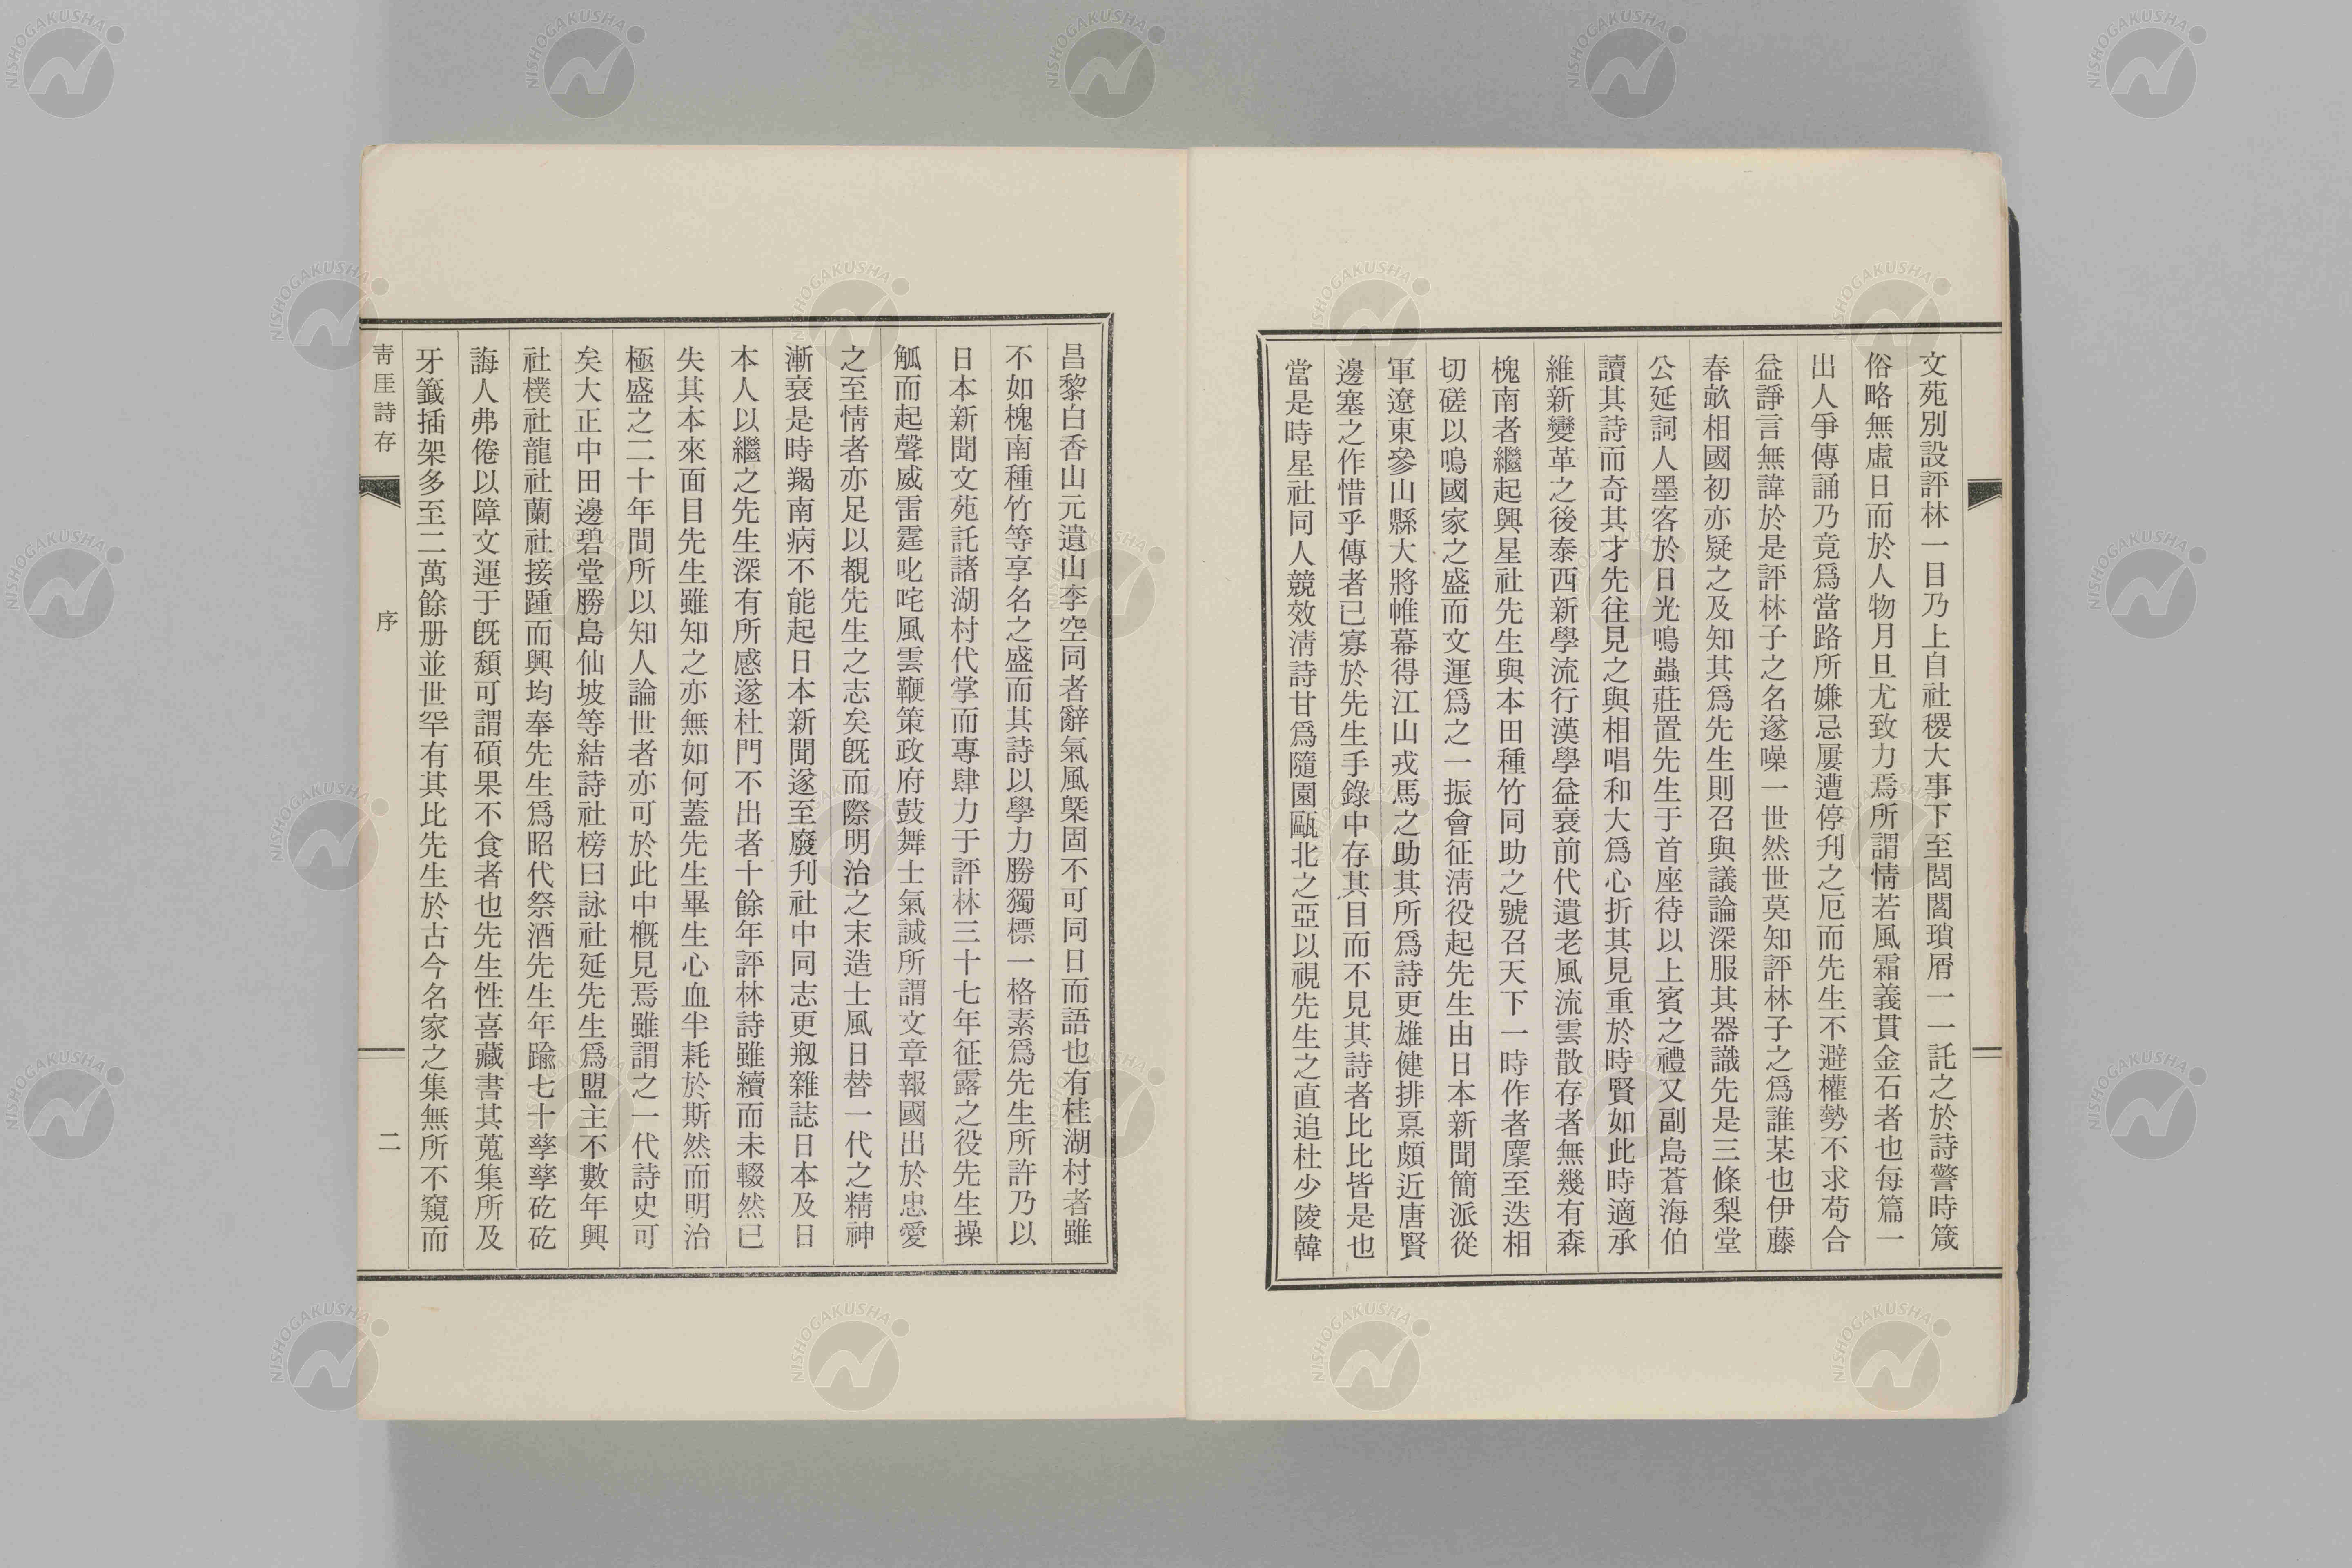 文苑別設評林一目乃上自社稷大事下至閭閻瑣屑一一託之於詩警時箴
俗略無虛日而於人物月旦尤致力焉所謂情若風霜義貫金石者也每篇一
出人爭傳誦乃竟爲當路所嫌忌屢遭停刋之厄而先生不避權勢不求苟合
益諍言無諱於是評林子之名遂噪一世然世莫知評林子之爲誰某也伊藤
春畝相國初亦疑之及知其爲先生則召與議論深服其器識先是三條梨堂
公延詞人墨客於日光鳴蟲莊置先生于首座待以上賓之禮又副島蒼海伯
讀其詩而奇其才先往見之與相唱和大爲心折其見重於時賢如此時適承
維新變革之後泰西新學流行漢學益衰前代遺老風流雲散存者無幾有森
槐南者繼起興星社先生與本田種竹同助之號召天下一時作者麇至迭相
切磋以鳴國家之盛而文運爲之一振會征淸役起先生由日本新聞簡派從
軍遼東參山縣大將帷幕得江山戎馬之助其所爲詩更雄健排奡頗近唐賢
邊塞之作惜乎傳者已寡於先生手錄中存其目而不見其詩者比比皆是也
當是時星社同人競效淸詩甘爲隨園甌北之亞以視先生之直追杜少陵韓
昌黎白香山元遺山李空同者辭氣風槩固不可同日而語也有桂湖村者雖
不如槐南種竹等享名之盛而其詩以學力勝獨標一格素爲先生所許乃以
日本新聞文苑託諸湖村代掌而專肆力于評林三十七年征露之役先生操
觚而起聲威雷霆叱咤風雲鞭策政府鼓舞士氣誠所謂文章報國出於忠愛
之至情者亦足以覩先生之志矣旣而際明治之末造士風日替一代之精神
漸衰是時羯南病不能起日本新聞遂至廢刋社中同志更剏雜誌日本及日
本人以繼之先生深有所感遂杜門不出者十餘年評林詩雖續而未輟然已
失其本來面目先生雖知之亦無如何蓋先生畢生心血半耗於斯然而明治
極盛之二十年間所以知人論世者亦可於此中槪見焉雖謂之一代詩史可
矣大正中田邊碧堂勝島仙坡等結詩社榜曰詠社延先生爲盟主不數年興
社樸社龍社蘭社接踵而興均奉先生爲昭代祭酒先生年踰七十孳孳矻矻
誨人弗倦以障文運于旣頹可謂碩果不食者也先生性喜藏書其蒐集所及
牙籤插架多至二萬餘册並世罕有其比先生於古今名家之集無所不窺而
靑厓詩存
序
二
NISHOGAKUSHA